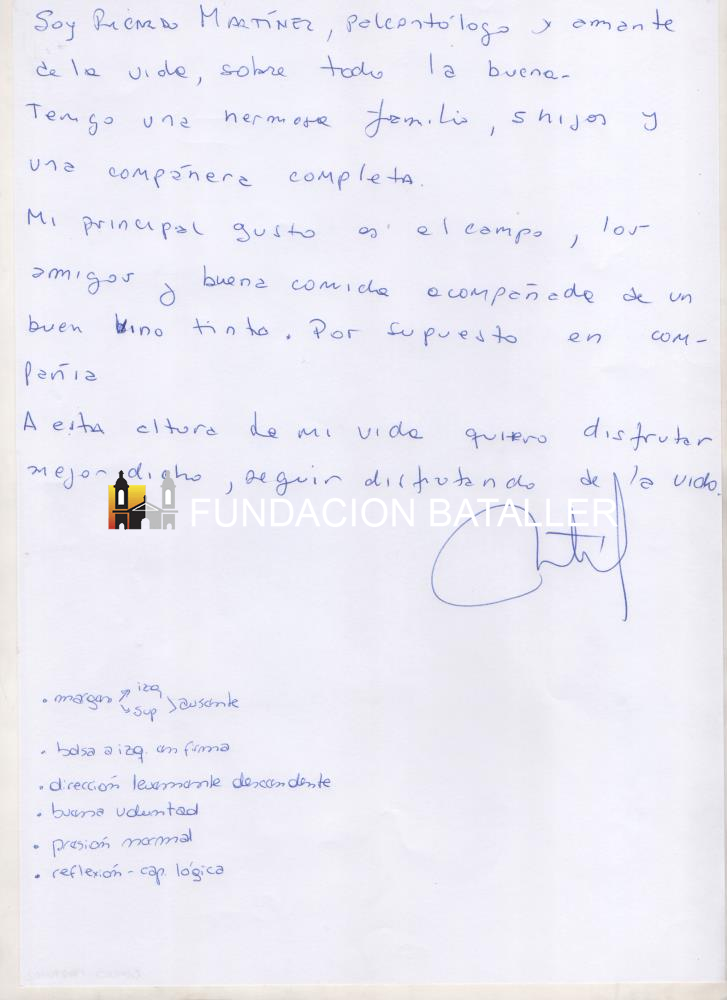 Soy RICARDO MARTÍNEZ, paleontólogo y amante
de la vida, sobre todo la buena.
Tengo una hermosa familia, 5 hijos y
una compañera completa.
Mi principal gusto es el campo, los
amigos y buena comida acompañada de un
buen vino tinto. Por supuesto en com-
pañía
A esta altura de mi vida quiero disfrutar
mejor dicho, seguir disfrutando de la vida.
FUNDACION BATALLER
• margen izq sup ausente
• bolsa a izq. en firma
• dirección levemente descendente
• buena voluntad
• presión normal
• reflexión - cap. lógica